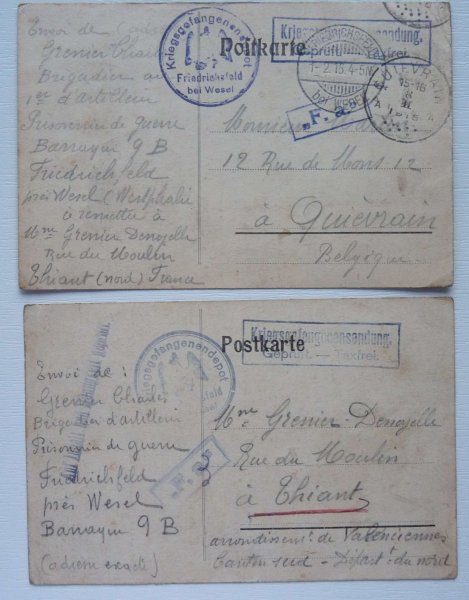 Envoi de
Grenier Charles
Brigadier au
1er d'artillerie
Prisonnier de guerre
Barraque 9 B
Friedrichsfeld
près Wesel (Westphalie
à remettre à
Mme Grenier Denozelle
Rue du Moulin
Thiant (nord) France
Kriegsgefangenendepot
Friedrichsfeld
bei Wesel
Postkarte
Kriegsgefangenensendung.
Geprüft. — Taxfrei.
1-2.15.4-5N
bei
QUIEVRAIN
15-16
„F. a."
Monsieur
12 Rue de Mons 12
à Quiévrain
Belgique
Envoi de :
Grenier Charles
Brigadier d'artillerie
Prisonnier de guerre
Friedrichsfeld
près Wesel
Barraque 9 B
(adresse exacte)
Kriegsgefangenendepot
Wesel
Postkarte
Kriegsgefangenensendung.
Geprüft. — Taxfrei.
Mme Grenier-Denozelle
Rue du Moulin
à Thiant
arrondissemt de Valenciennes
Canton sud - Départt du nord